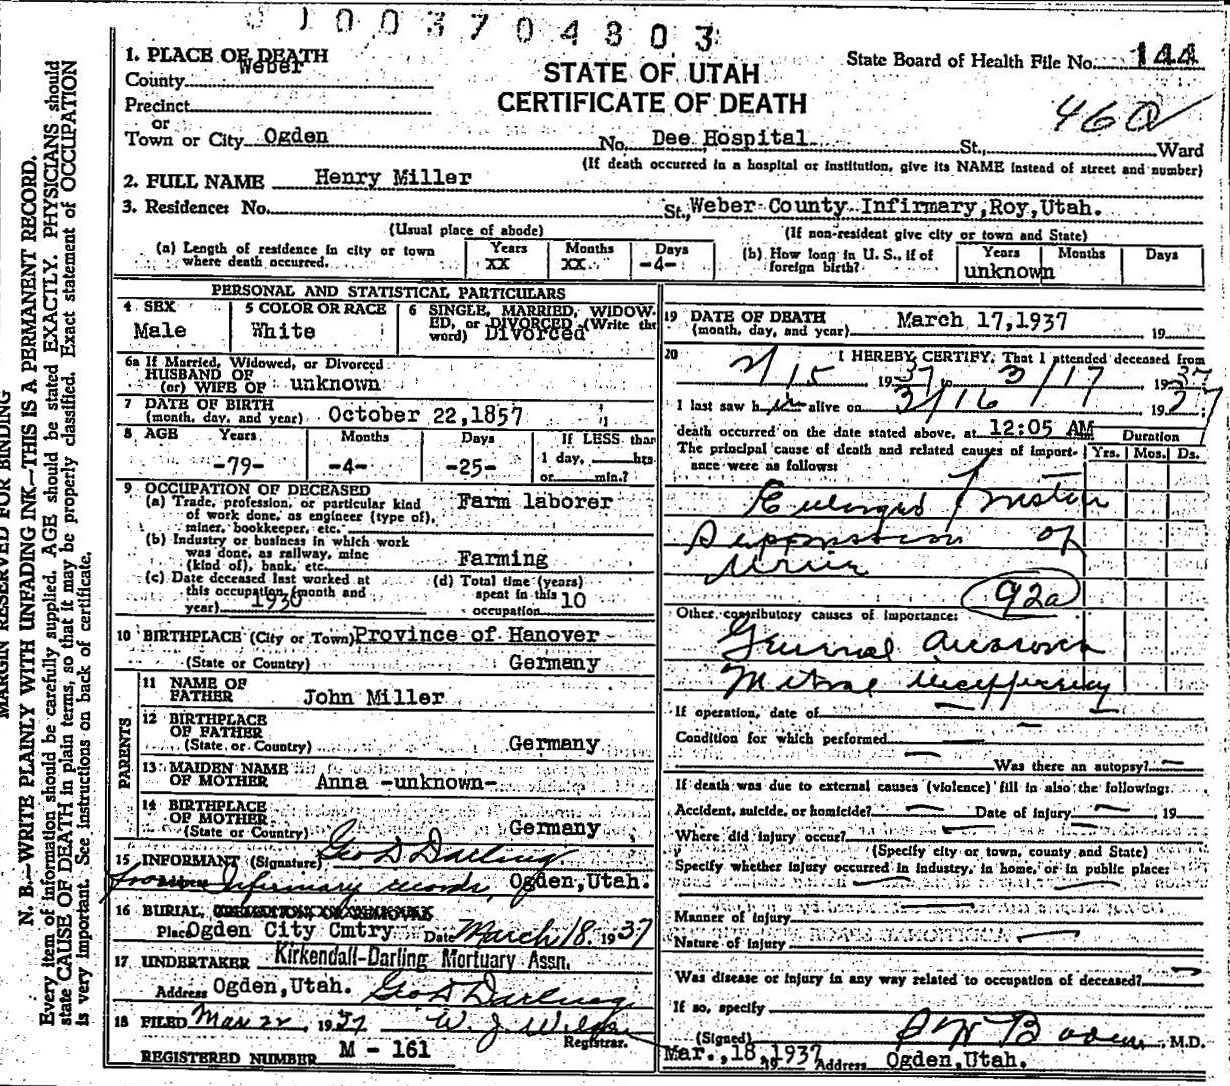 01003704803
1. PLACE OF DEATH
County Weber
Precinct
or
Town or City Ogden
STATE OF UTAH
CERTIFICATE OF DEATH
State Board of Health File No. 144
460
No. Dee Hospital St., Ward
(If death occurred in a hospital or institution, give its NAME instead of street and number)
2. FULL NAME Henry Miller
3. Residence: No. St., Weber County Infirmary, Roy, Utah.
(Usual place of abode) (If non-resident give city or town and State)
(a) Length of residence in city or town where death occurred. Years XX Months XX Days -4-
(b) How long in U. S., if of foreign birth? Years unknown Months Days
PERSONAL AND STATISTICAL PARTICULARS
4 SEX Male
5 COLOR OR RACE White
6 SINGLE, MARRIED, WIDOWED, or DIVORCED (Write the word) Divorced
6a If Married, Widowed, or Divorced
HUSBAND OF
(or) WIFE OF unknown
7 DATE OF BIRTH
(month, day, and year) October 22, 1857
8 AGE Years -79- Months -4- Days -25- If LESS than 1 day, hrs. or min.?
9 OCCUPATION OF DECEASED
(a) Trade, profession, or particular kind of work done, as engineer (type of), miner, bookkeeper, etc. Farm laborer
(b) Industry or business in which work was done, as railway, mine (kind of), bank, etc. Farming
(c) Date deceased last worked at this occupation (month and year) 1930
(d) Total time (years) spent in this occupation 10
10 BIRTHPLACE (City or Town) Province of Hanover
(State or Country) Germany
PARENTS
11 NAME OF FATHER John Miller
12 BIRTHPLACE OF FATHER
(State or Country) Germany
13 MAIDEN NAME OF MOTHER Anna -unknown-
14 BIRTHPLACE OF MOTHER
(State or Country) Germany
15 INFORMANT (Signature) Geo D Darling
from Infirmary records, Ogden, Utah.
16 BURIAL, CREMATION OR REMOVAL
Place Ogden City Cmtry. Date March 18, 1937
17 UNDERTAKER Kirkendall-Darling Mortuary Assn.
Address Ogden, Utah. Geo D Darling
18 FILED Mar 22, 1937 W. J. Registrar.
REGISTERED NUMBER M - 161
19 DATE OF DEATH
(month, day, and year) March 17, 1937 19
20 I HEREBY CERTIFY, That I attended deceased from
2/15 1937 to 3/17 1937
I last saw him alive on 3/16 1937
death occurred on the date stated above, at 12:05 AM
Duration
The principal cause of death and related causes of importance were as follows: Yrs. Mos. Ds.
Enlarged Prostate
Suppression of
Urine
92a
Other contributory causes of importance:
General
Mitral
If operation, date of
Condition for which performed
Was there an autopsy?
If death was due to external causes (violence) fill in also the following:
Accident, suicide, or homicide? Date of injury , 19
Where did injury occur?
(Specify city or town, county and State)
Specify whether injury occurred in industry, in home, or in public place:
Manner of injury
Nature of injury
Was disease or injury in any way related to occupation of deceased?
If so, specify
(Signed) M.D.
Mar., 18, 1937 19 Address Ogden, Utah.
MARGIN RESERVED FOR BINDING
N. B.—WRITE PLAINLY WITH UNFADING INK—THIS IS A PERMANENT RECORD.
Every item of information should be carefully supplied. AGE should be stated EXACTLY. PHYSICIANS should
state CAUSE OF DEATH in plain terms, so that it may be properly classified. Exact statement of OCCUPATION
is very important. See instructions on back of certificate.